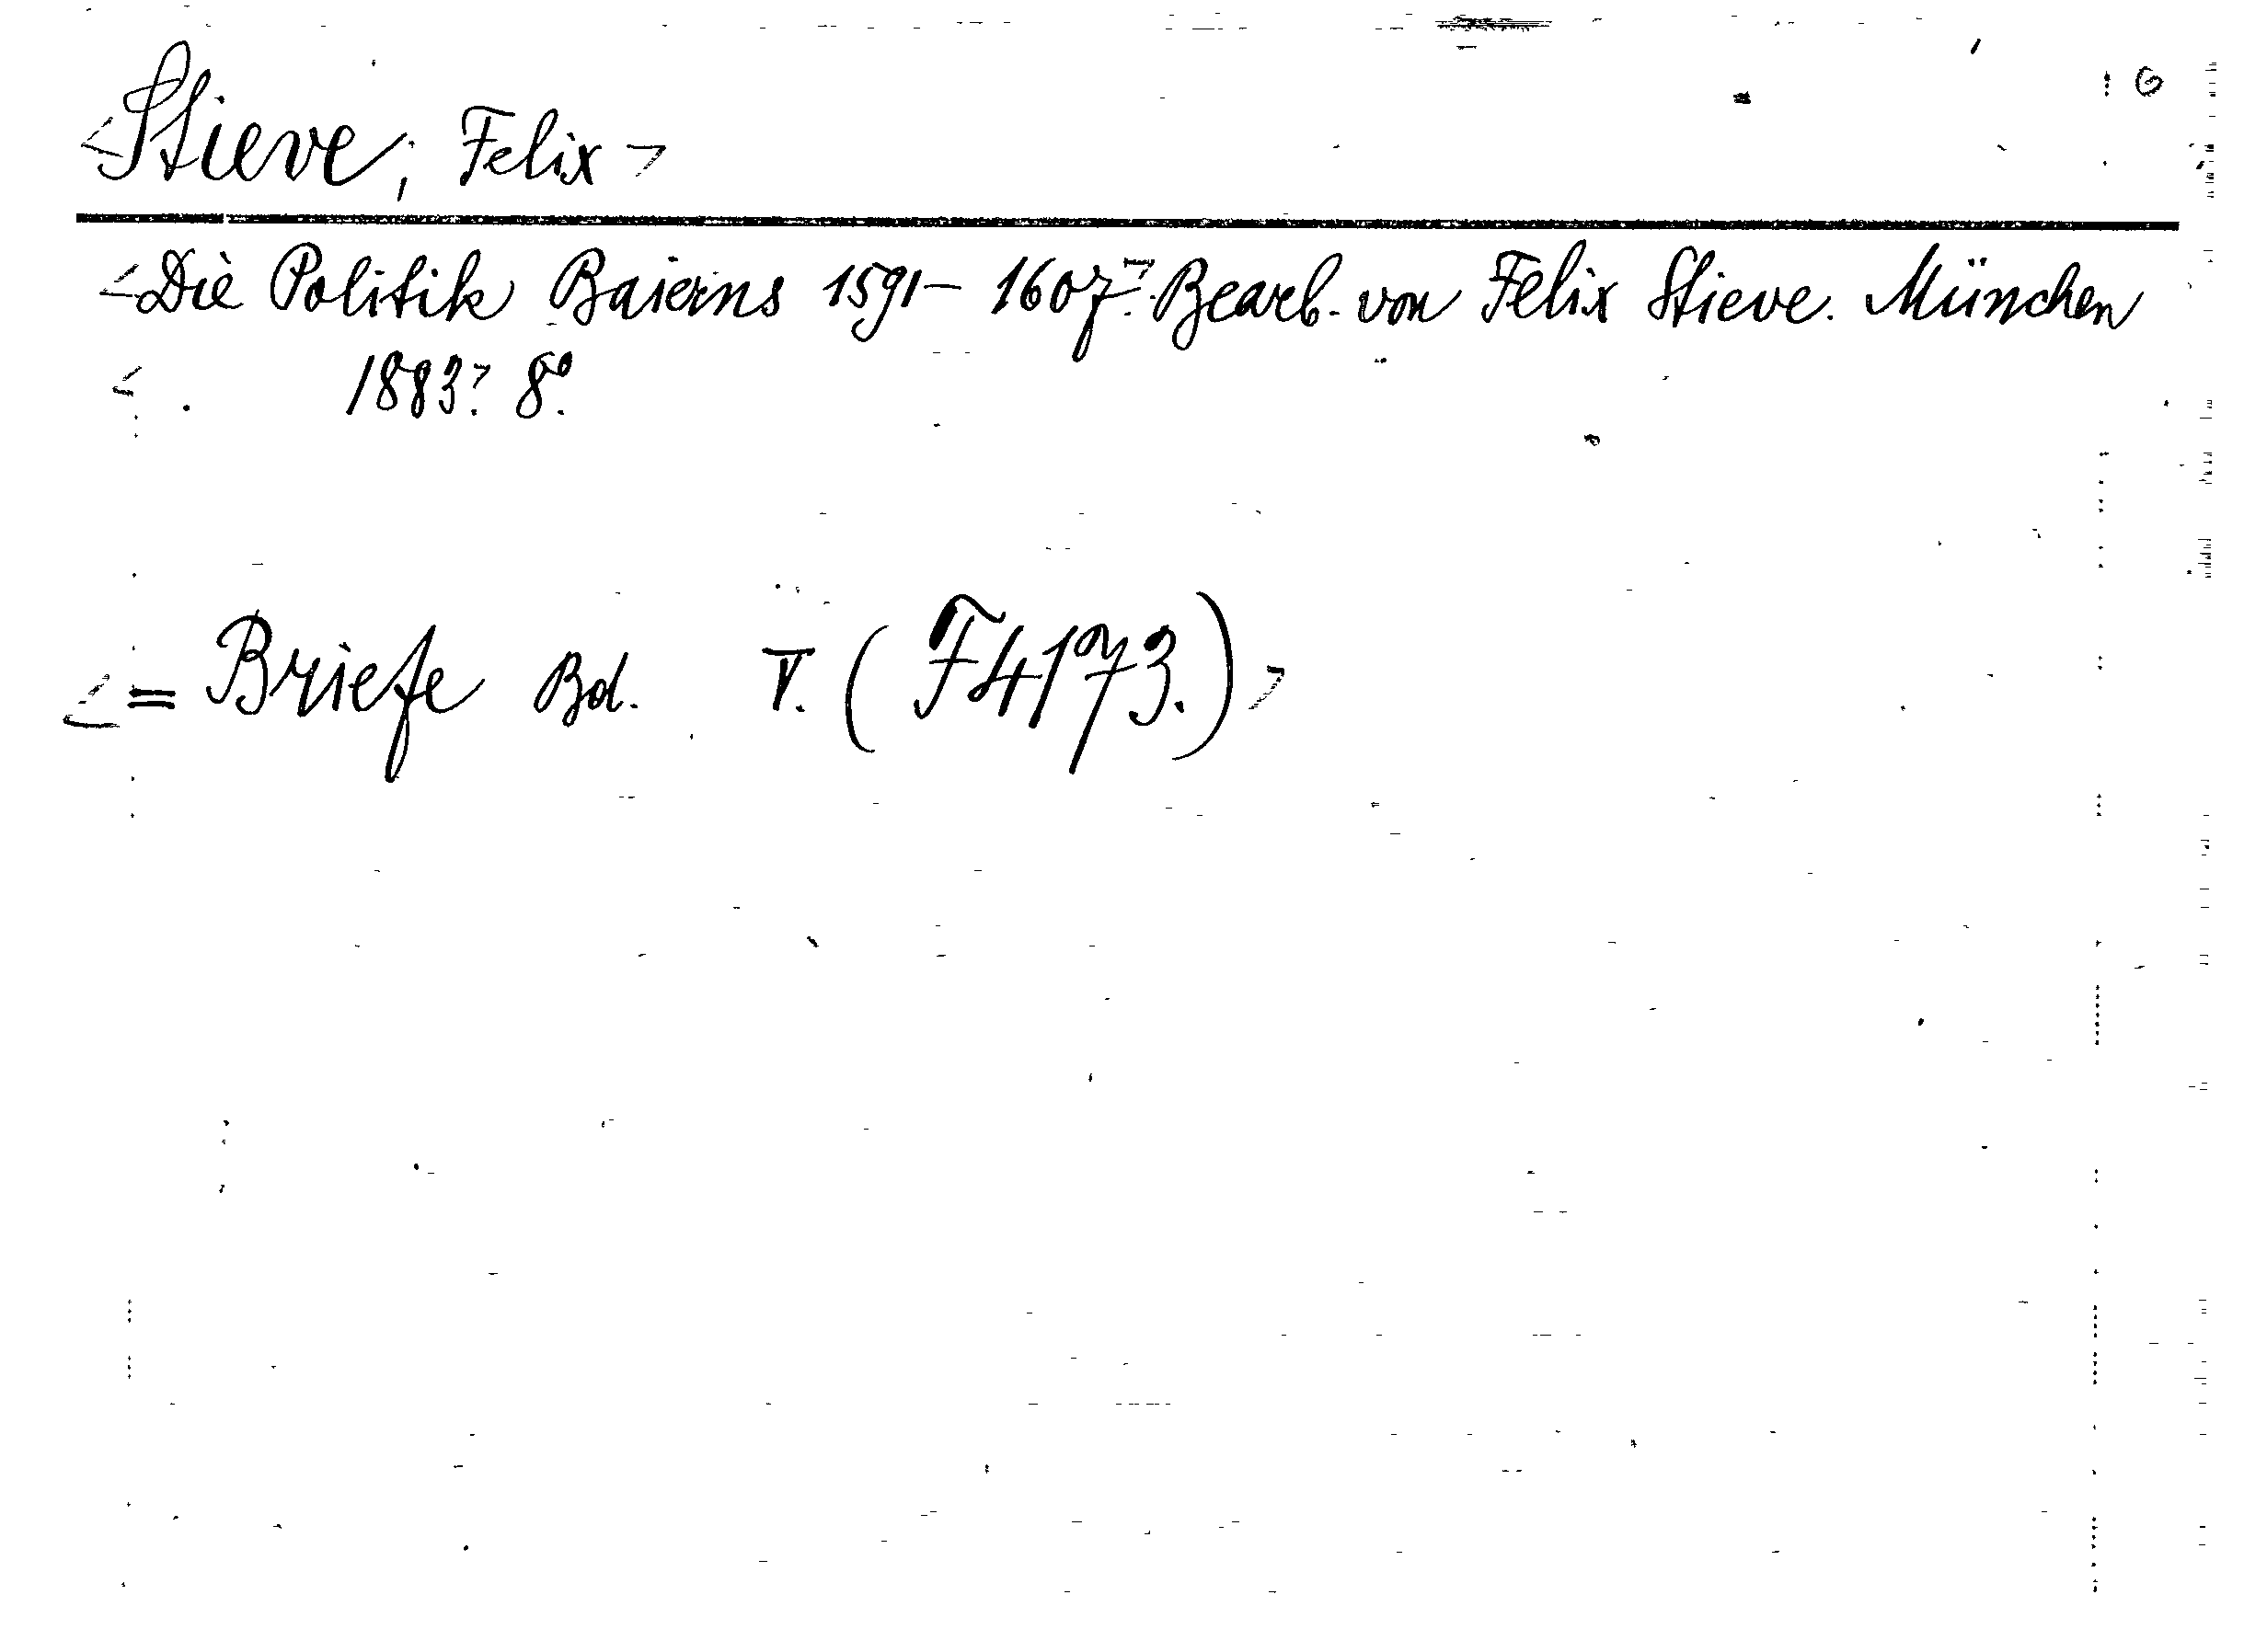 <Stieve, Felix>
<Die Politik Baierns 1591-1607>. Bearb. von Felix Stieve. München
< 1883>. 8°.
<= Briefe Bd. V. (F4173.)>